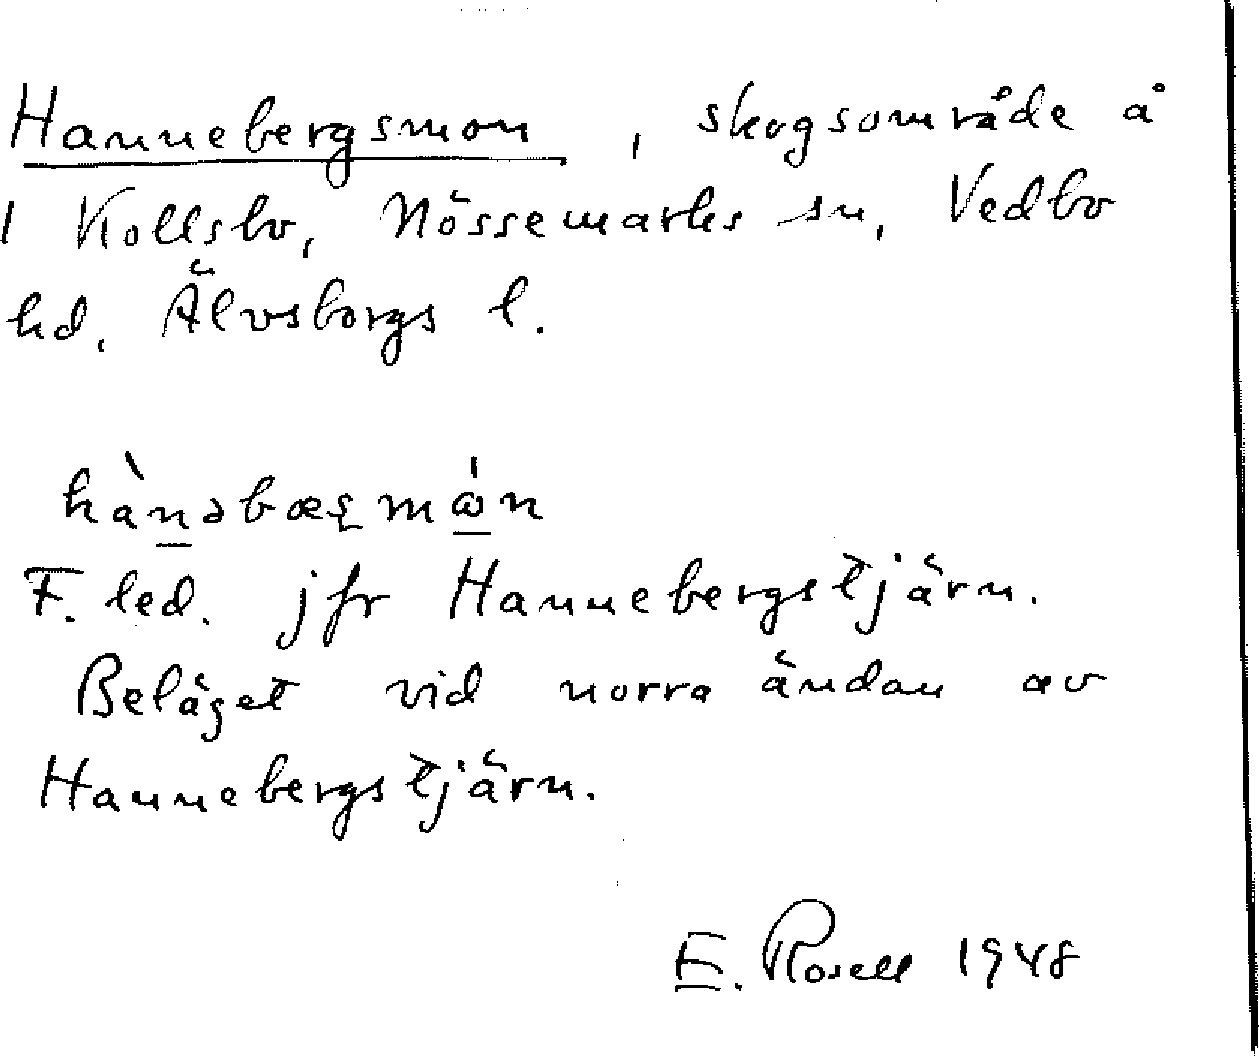 Hannebergsmon, skogsområde å
1 Kollsbo, Nössemarks sn, Vedbo
hd, Älvsborgs l.
hànəbæʂmώn
F. led. jfr Hannebergstjärn.
Beläget vid norra ändan av
Hannebergstjärn.
E. Rosell 1948